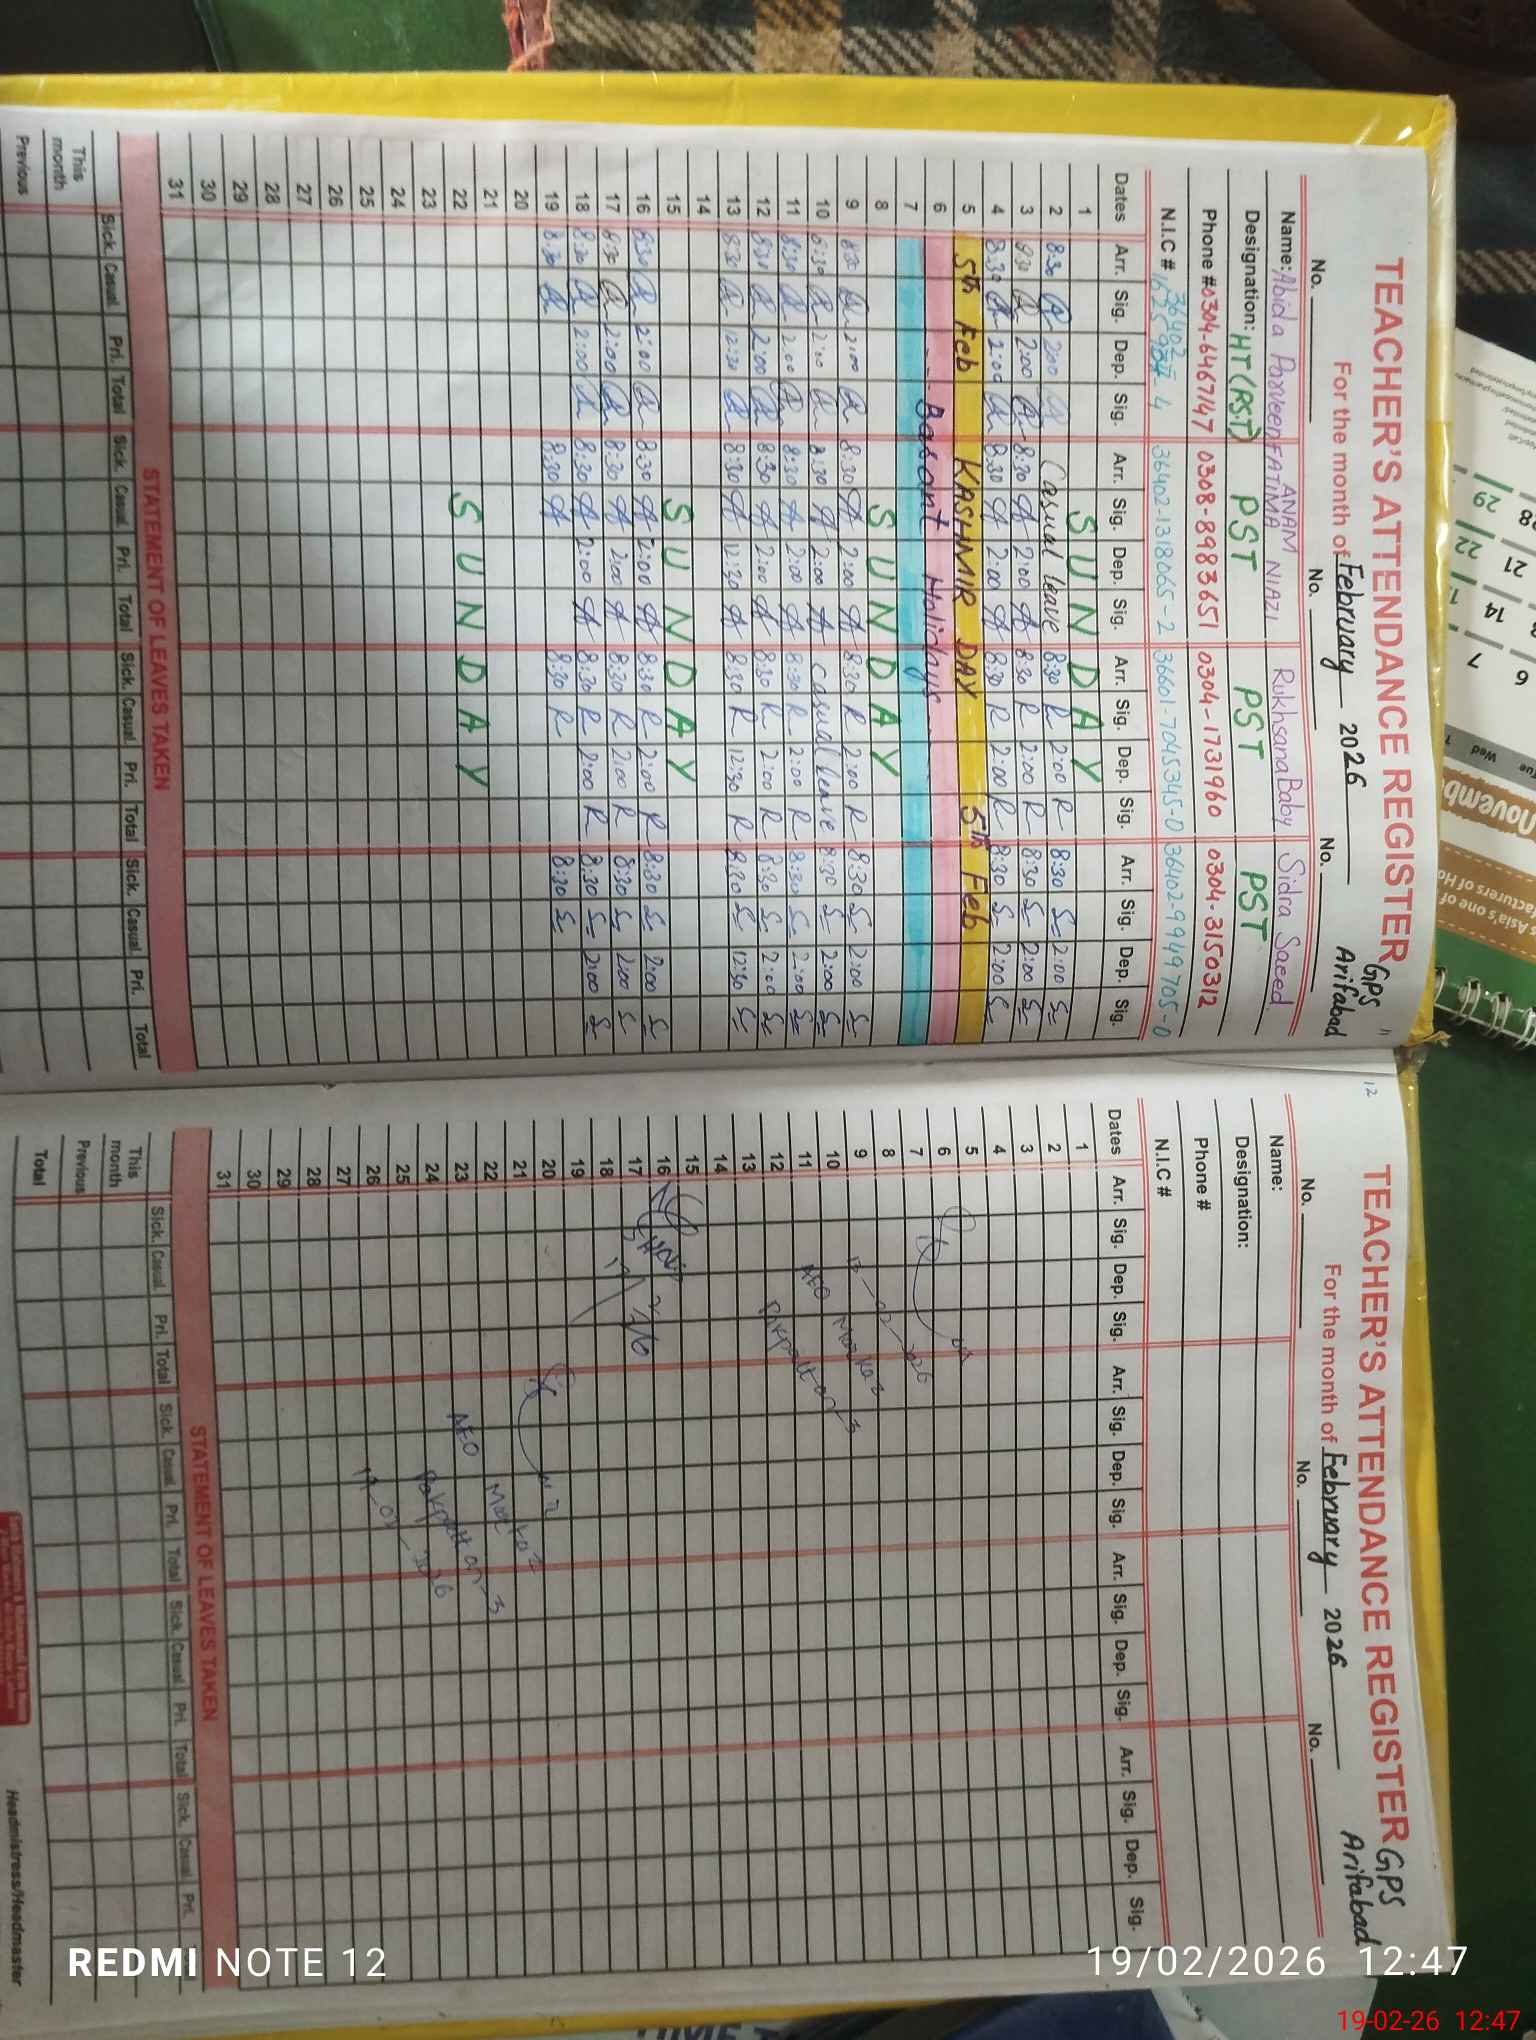 TEACHER'S ATTENDANCE REGISTER GPS Arifabad
For the month of February 2026
11
No. No. No.
Name: Abida Parveen ANAM NIAZI FATIMA Rukhsana Baby Sidra Saeed
Designation: HT (RST) PST PST PST
Phone # 0304-6467147 0308-8983651 0304-1731960 0304-3150312
N.I.C # 36402-1318065-2 36601-7045345-0 36402-9949705-0
Dates Arr. Sig. Dep. Sig. Arr. Sig. Dep. Sig. Arr. Sig. Dep. Sig. Arr. Sig. Dep. Sig.
1 SUNDAY
2 8:30 2:00 Casual leave 8:30 R 2:00 R 8:30 S 2:00 S
3 8:30 2:00 8:30 A 2:00 A 8:30 R 2:00 R 8:30 S 2:00 S
4 8:30 2:00 8:30 A 2:00 A 8:30 R 2:00 R 8:30 S 2:00 S
5 5th Feb KASHMIR DAY 5th Feb
6 Basant Holidays
7
8 SUNDAY
9 8:30 2:00 8:30 A 2:00 A 8:30 R 2:00 R 8:30 S 2:00 S
10 8:30 2:00 8:30 A 2:00 A Casual leave 8:30 S 2:00 S
11 8:30 2:00 8:30 A 2:00 A 8:30 R 2:00 R 8:30 S 2:00 S
12 8:30 2:00 8:30 A 2:00 A 8:30 R 2:00 R 8:30 S 2:00 S
13 8:30 12:30 8:30 A 12:30 A 8:30 R 12:30 R 8:30 S 12:30 S
14
15 SUNDAY
16 8:30 2:00 8:30 A 2:00 A 8:30 R 2:00 R 8:30 S 2:00 S
17 8:30 2:00 8:30 A 2:00 A 8:30 R 2:00 R 8:30 S 2:00 S
18 8:30 2:00 8:30 A 2:00 A 8:30 R 2:00 R 8:30 S 2:00 S
19 8:30 8:30 A 8:30 R 8:30 S
20
21
22 SUNDAY
23
24
25
26
27
28
29
30
31
STATEMENT OF LEAVES TAKEN
Sick. Casual. Pri. Total Sick. Casual. Pri. Total Sick. Casual. Pri. Total Sick. Casual. Pri. Total
This month
Previous
12
TEACHER'S ATTENDANCE REGISTER GPS Arifabad
For the month of February 2026
No. No. No.
Name:
Designation:
Phone #
N.I.C #
Dates Arr. Sig. Dep. Sig. Arr. Sig. Dep. Sig. Arr. Sig. Dep. Sig. Arr. Sig. Dep. Sig.
1
2
3
4
5
6
7
8
9
10
11
12
13
14
15
16
17
18
19
20
21
22
23
24
25
26
27
28
29
30
31
AEO
Markaz
Pakpattan-3
AEO
Markaz
Pakpattan-3
STATEMENT OF LEAVES TAKEN
Sick. Casual. Pri. Total Sick. Casual. Pri. Total Sick. Casual. Pri. Total Sick. Casual. Pri.
This month
Previous
Total
Headmistress/Headmaster
REDMI NOTE 12
19/02/2026 12:47
19-02-26 12:47